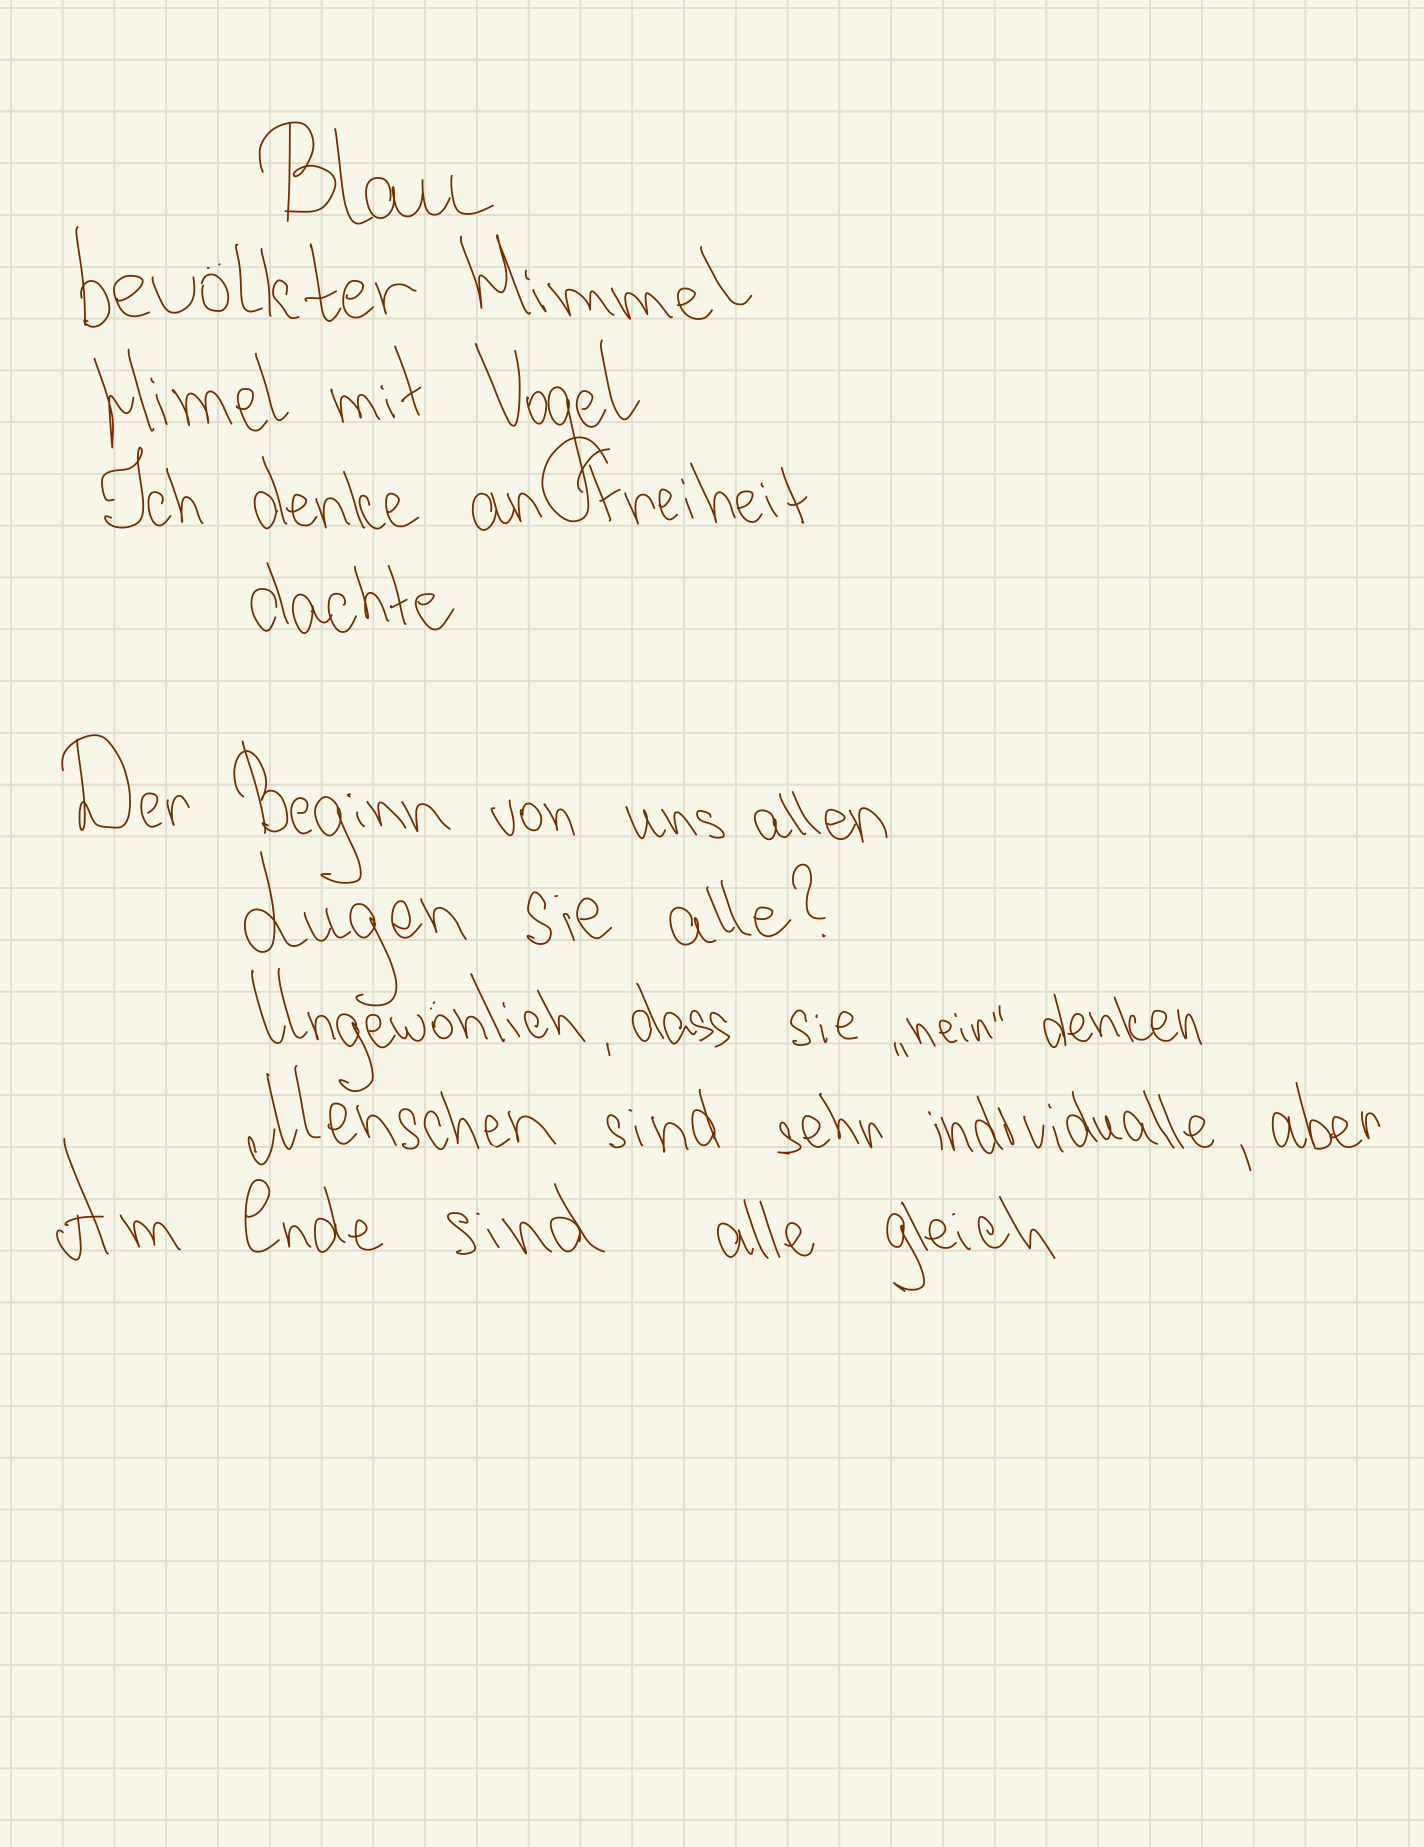 Blau
bevölkter Himmel
Himel mit Vogel
Ich denke an Freiheit
dachte
Der Beginn von uns allen
Lugen sie alle?
Ungewönlich, dass sie „nein" denken
Menschen sind sehr individualle, aber
Am Ende sind alle gleich